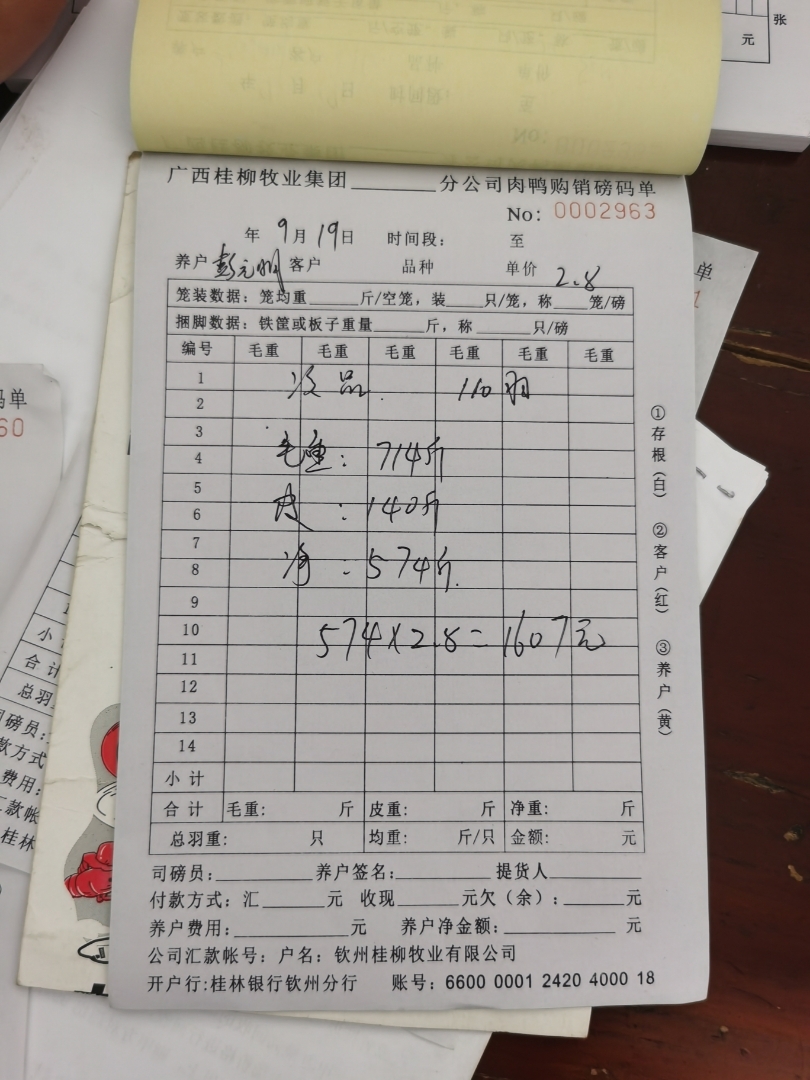 元
张
广西桂柳牧业集团________分公司肉鸭购销磅码单
No: 0002963
年 9月19日 时间段: 至
养户 彭元明 客户 品种 单价 2.8
笼装数据: 笼均重______斤/空笼, 装____只/笼, 称____笼/磅
捆脚数据: 铁筐或板子重量______斤, 称______只/磅
编号 毛重 毛重 毛重 毛重 毛重 毛重
1 次品 110羽
2
3
4 毛重: 714斤
5
6 皮: 140斤
7
8 净: 574斤.
9
10 574×2.8=1607元
11
12
13
14
小计
合计 毛重: 斤 皮重: 斤 净重: 斤
总羽重: 只 均重: 斤/只 金额: 元
司磅员:__________养户签名:__________提货人__________
付款方式: 汇______元 收现______元欠(余):______元
养户费用:____________元 养户净金额:____________元
公司汇款帐号: 户名: 钦州桂柳牧业有限公司
开户行:桂林银行钦州分行 账号: 6600 0001 2420 4000 18
①存根(白) ②客户(红) ③养户(黄)
单
1
码单
60
小
合计
总羽
司磅员:
款方式
费用:
汇款帐
桂林